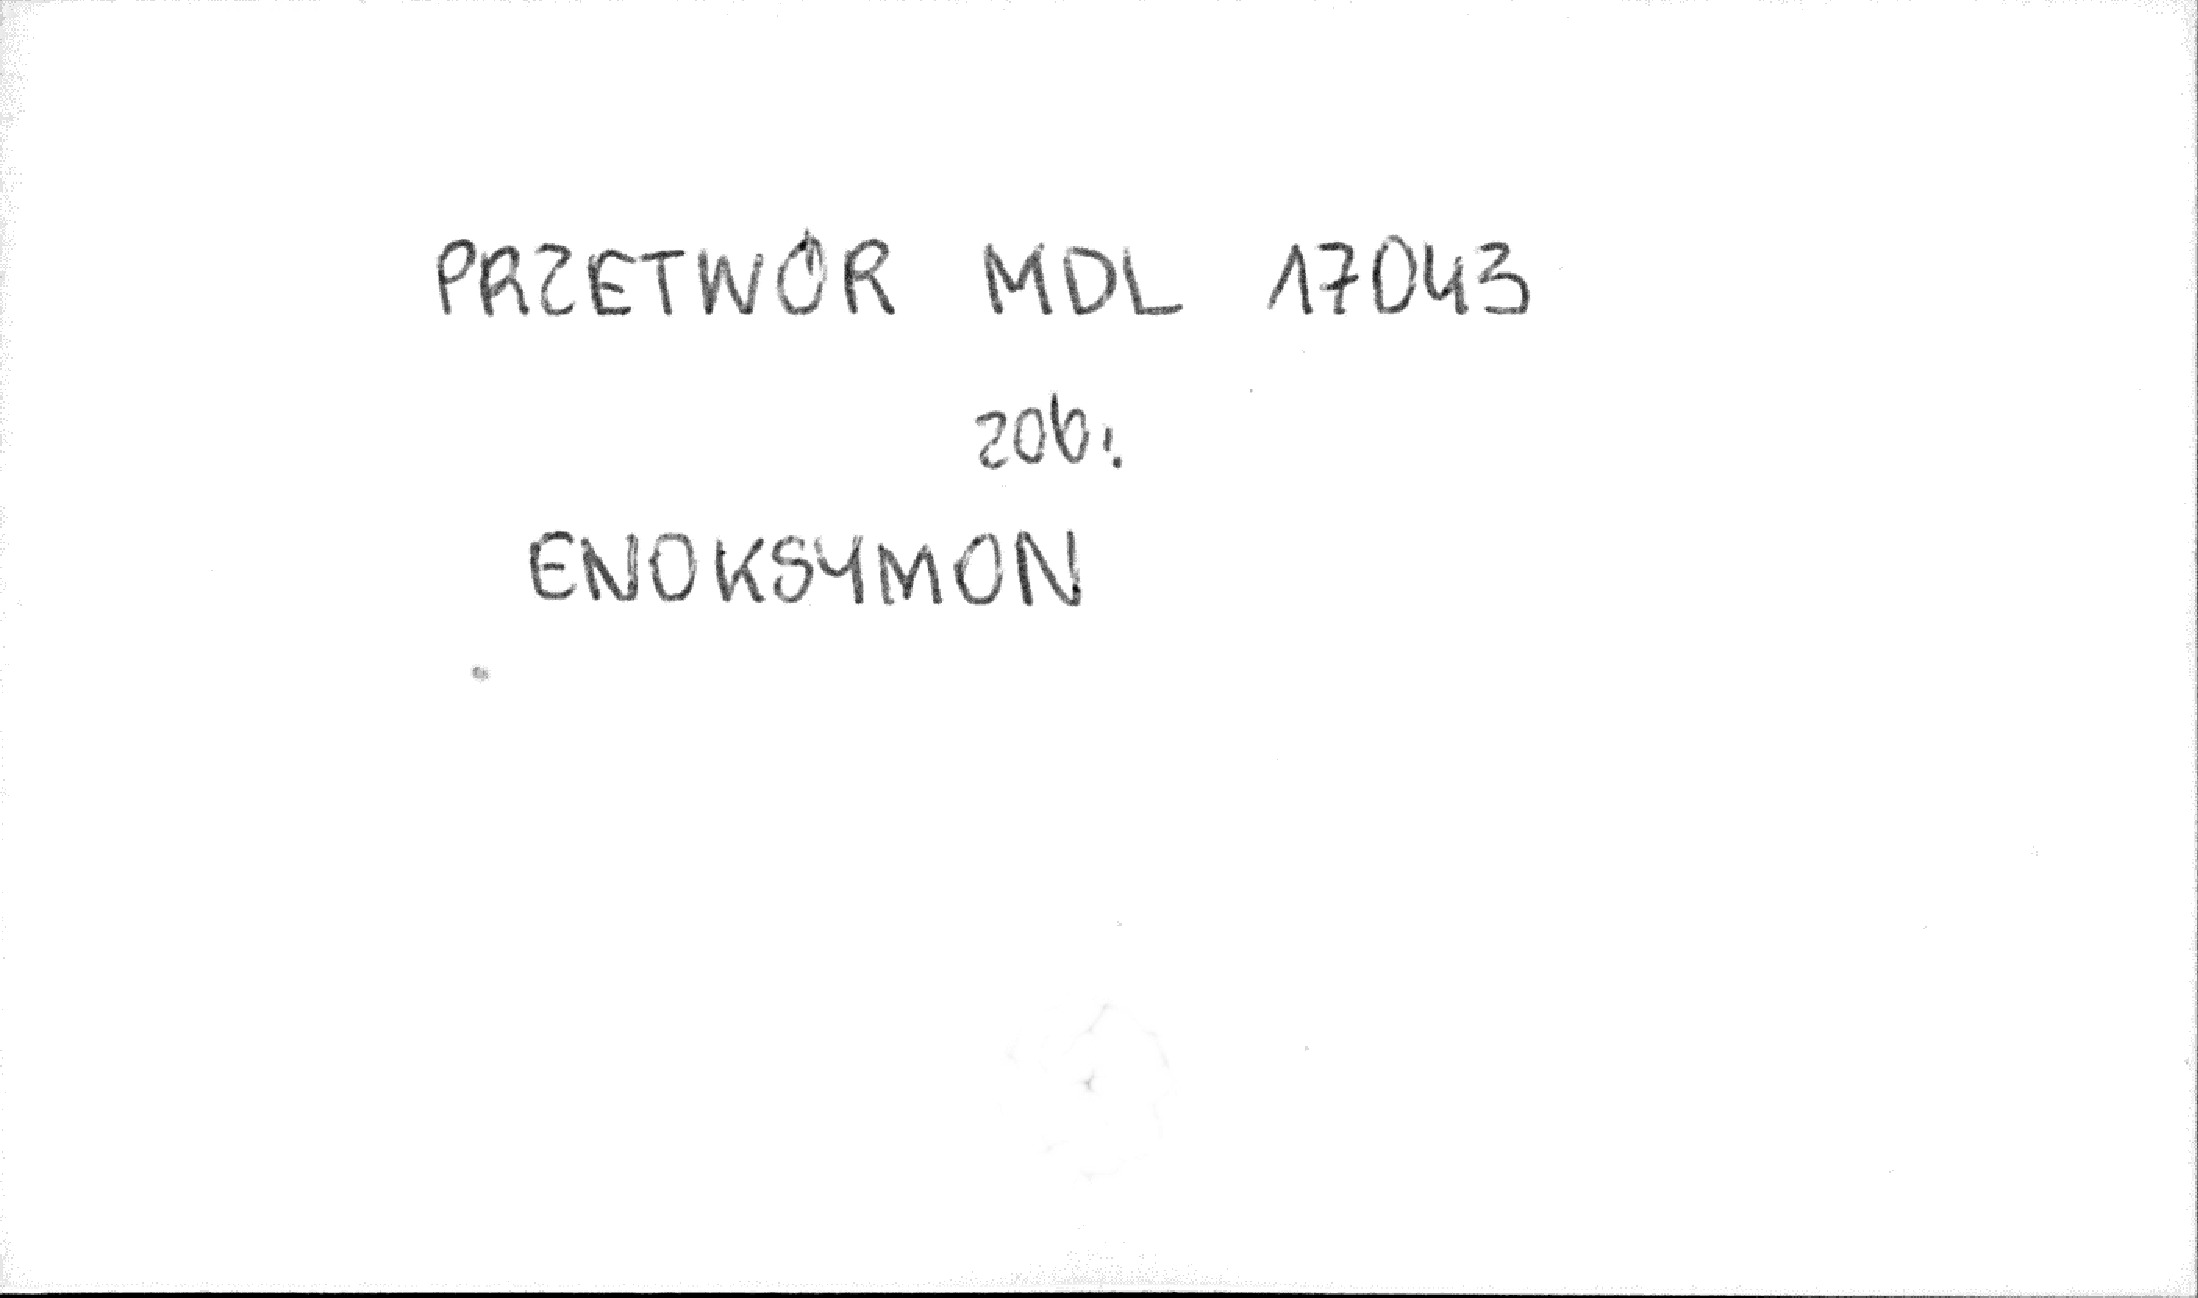 PRZETWÓR MDL 17043
zob.
ENOKSYMON